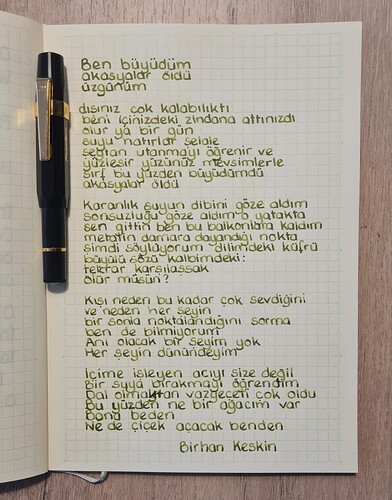 Ben büyüdüm
akasyalar öldü
üzgünüm
dışınız çok kalabalıktı
beni içinizdeki zindana attınızdı
olur ya bir gün
suyu hatırlar şelale
şeytan utanmayı öğrenir ve
yüzleşir yüzünüz mevsimlerle
sırf bu yüzden büyüdümdü
akasyalar öldü
Karanlık suyun dibini göze aldım
sonsuzluğu göze aldım o yatakta
sen gittin ben bu balkonlara kaldım
metalin damara dayandığı nokta
şimdi söylüyorum dilimdeki küfrü
büyülü sözü kalbimdeki:
tekrar karşılaşsak
ölür müsün?
Kişi neden bu kadar çok sevdiğini
ve neden her şeyin
bir sonla noktalandığını sorma
ben de bilmiyorum
Anı olacak bir şeyim yok
Her şeyin dünündeyim
İçime işleyen acıyı size değil
Bir suya bırakmayı öğrendim
Dal olmaktan vazgeçeti çok oldu
Bu yüzden ne bir ağacım var
bana beden
Ne de çiçek açacak benden
Birhan Keskin